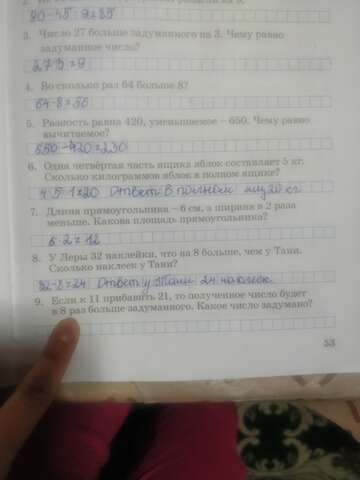 90-45:9=85
3. Число 27 больше задуманного на 3. Чему равно
задуманное число?
4. Во сколько раз 64 больше 8?
64-8=56
5. Разность равна 420, уменьшаемое – 650. Чему равно
вычитаемое?
650-420=230
6. Одна четвёртая часть ящика яблок составляет 5 кг.
Сколько килограммов яблок в полном ящике?
Ответ в полном 20 кг
7. Длина прямоугольника – 6 см, а ширина в 2 раза
меньше. Какова площадь прямоугольника?
6·2=12
8. У Леры 32 наклейки, что на 8 больше, чем у Тани.
Сколько наклеек у Тани?
32-8=24 Ответ у Тани 24 наклеек
9. Если к 11 прибавить 21, то полученное число будет
в 8 раз больше задуманного. Какое число задумано?
53